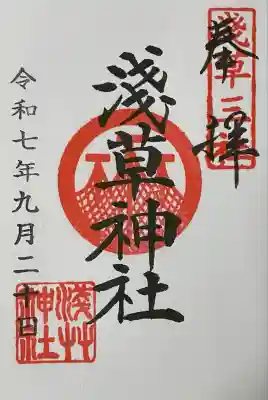 奉拝
淺草三社
淺草神社
令和七年九月二十日
淺草神社